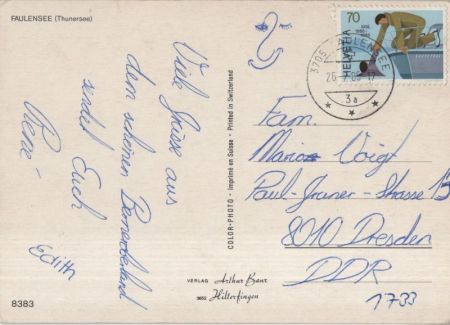 FAULENSEE (Thunersee)
Viele Grüsse aus
dem schönen Berneroberland
sendet Euch
René
Edith
8383
COLOR-PHOTO - Imprimé en Suisse - Printed in Switzerland
VERLAG Arthur Baur
3652 Hilterfingen
70
HELVETIA
3705 FAULENSEE
3a
Fam.
Mario Voigt
Paul-Gruner-Strasse 15
8010 Dresden
DDR
1733